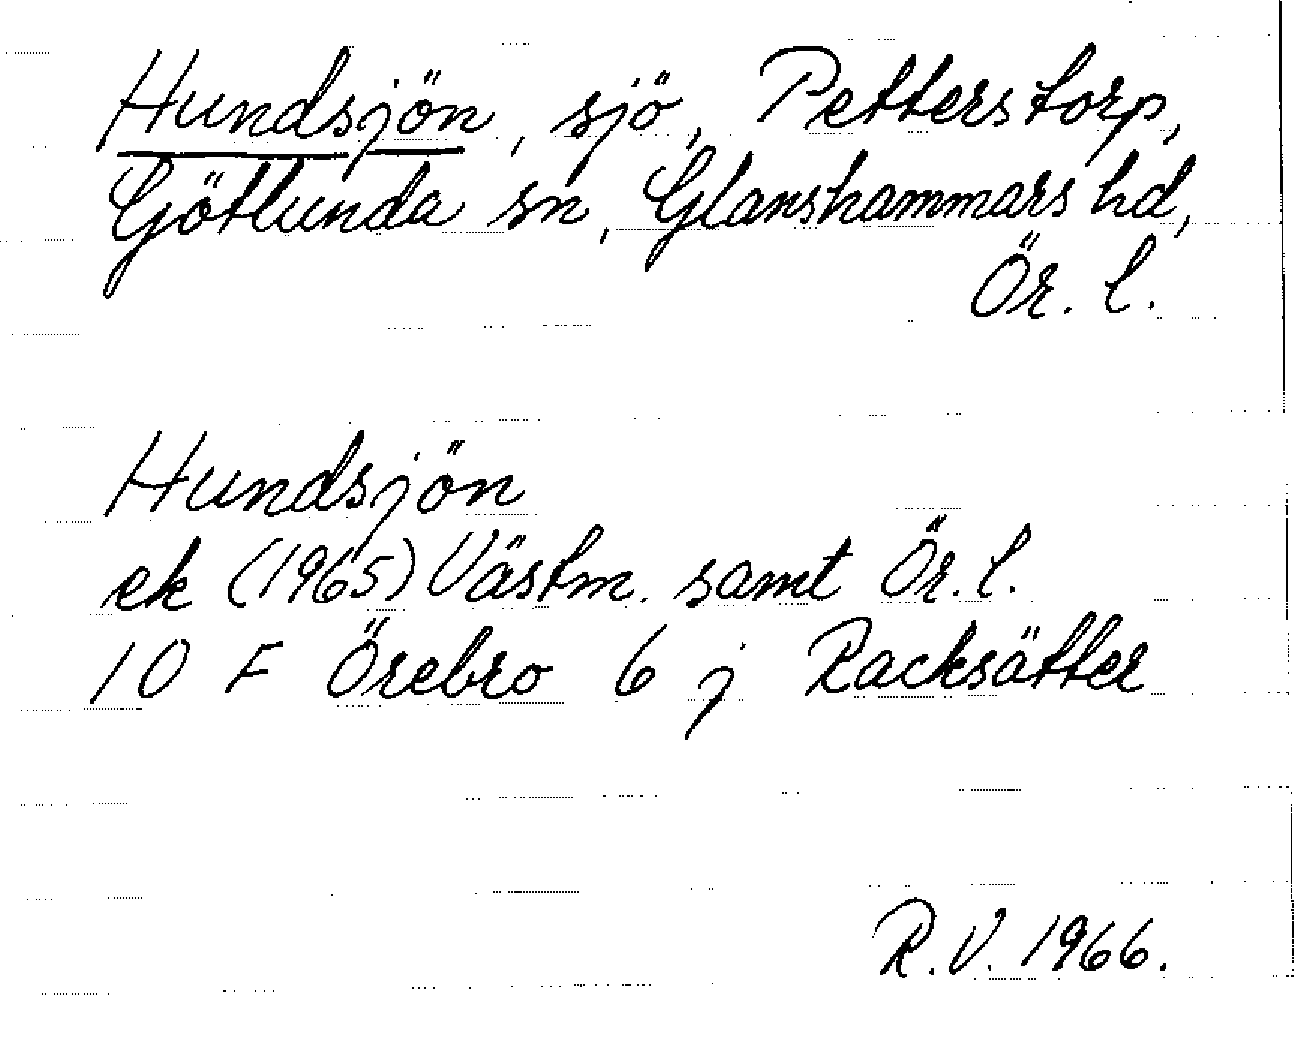 Hundsjön, sjö, Petterstorp,
Götlunda sn, Glanshammars hd,
Ör. l.
Hundsjön
ek (1965) Västm. samt Ör. l.
10 F Örebro 6 j Racksätter
R. V. 1966.